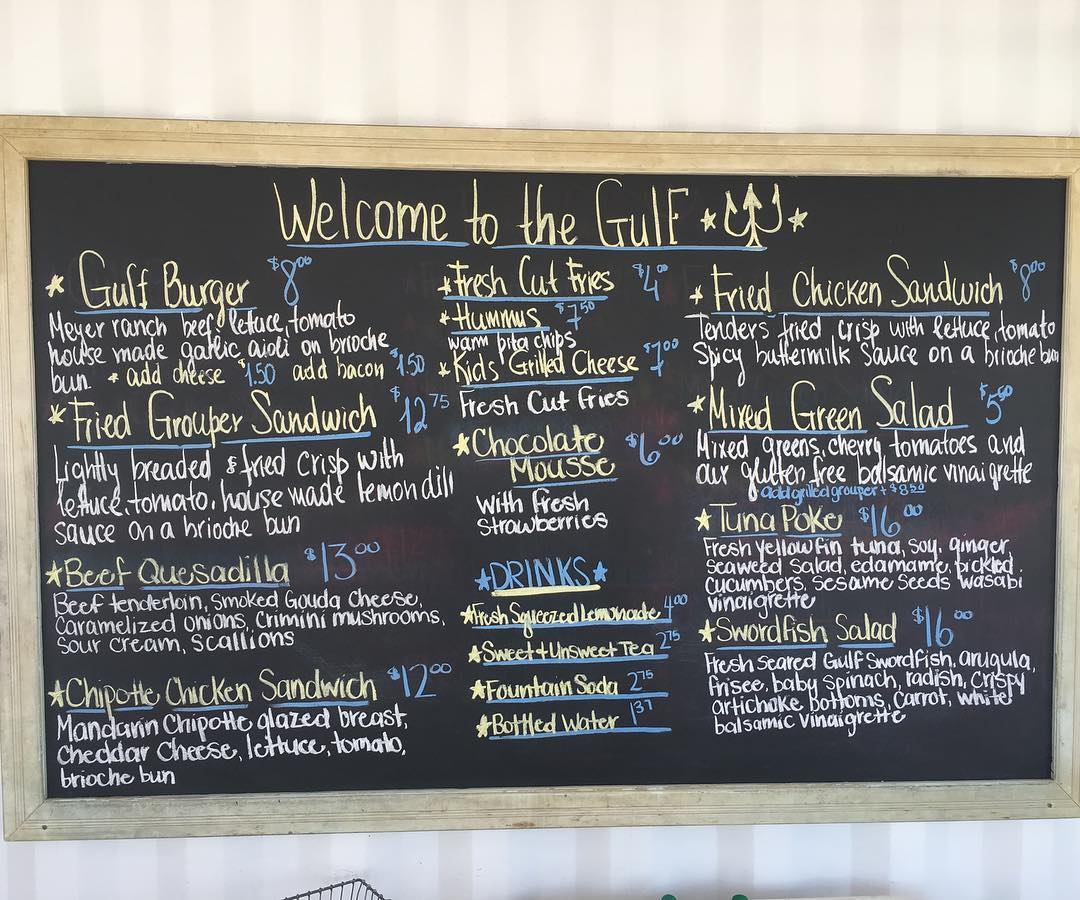 Welcome to the Gulf
Gulf Burger $8.00
Meyer ranch beef, lettuce, tomato
house made garlic aioli on brioche
bun * add cheese $1.50 add bacon $1.50
Fried Grouper Sandwich $12.75
Lightly breaded & fried crisp with
lettuce, tomato, house made lemon dill
sauce on a brioche bun
Beef Quesadilla $13.00
Beef tenderloin, smoked Gouda cheese,
caramelized onions, crimini mushrooms,
sour cream, scallions
Chipotle Chicken Sandwich $12.00
Mandarin Chipotle glazed breast,
cheddar cheese, lettuce, tomato,
brioche bun
Fresh Cut Fries $4.00
Hummus $7.50
warm pita chips
Kids' Grilled Cheese $7.00
Fresh Cut Fries
Chocolate
Mousse $6.00
With Fresh
Strawberries
DRINKS
Fresh Squeezed Lemonade 4.00
Sweet + Unsweet Tea 2.75
Fountain Soda 2.75
Bottled Water 1.37
Fried Chicken Sandwich $8.00
Tenders fried crisp with lettuce, tomato
Spicy buttermilk sauce on a brioche bun
Mixed Green Salad
Mixed greens, cherry tomatoes and
our gluten free balsamic vinaigrette
add grilled grouper + $8.50
Tuna Poke $16.00
Fresh yellowfin tuna, soy, ginger
seaweed salad, edamame, pickled
cucumbers, sesame seeds wasabi
vinaigrette
Swordfish Salad $16.00
Fresh seared Gulf Swordfish, arugula,
frisee, baby spinach, radish, crispy
artichoke bottoms, carrot, white
balsamic vinaigrette